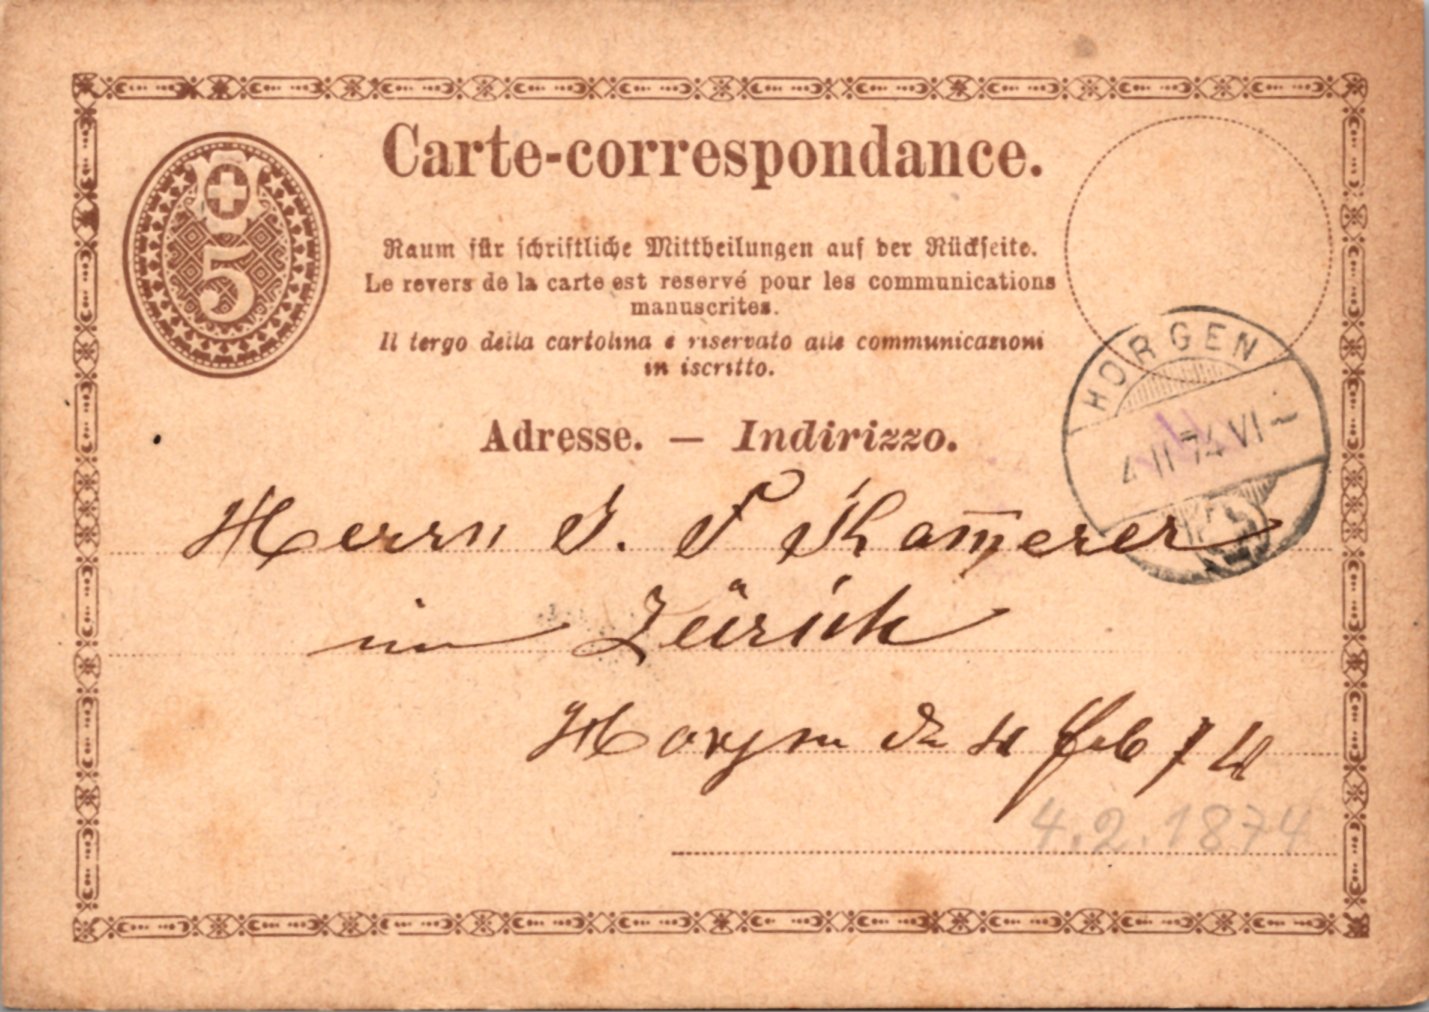 Carte-correspondance.
5
Raum für schriftliche Mittheilungen auf der Rückseite.
Le revers de la carte est reservé pour les communications
manuscrites.
Il tergo della cartolina è riservato alle communicazioni
in iscritto.
HORGEN
4 II 74 VI
Adresse. — Indirizzo.
Herrn J. F Kam̅erer
in Zürich
Horgen 4 Feb 74
4.2.1874